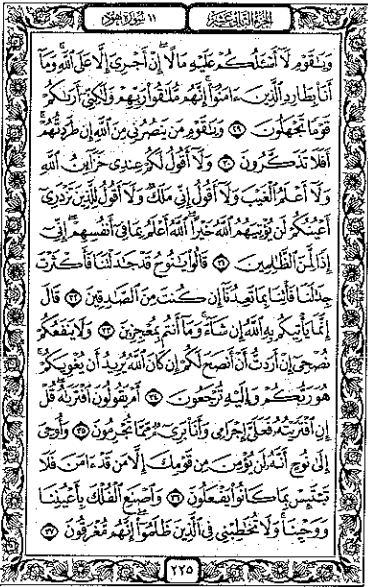 الجزء الثاني عشر
١١ سورة هود
وَيَٰقَوْمِ لَآ أَسْـَٔلُكُمْ عَلَيْهِ مَالًا إِنْ أَجْرِىَ إِلَّا عَلَى ٱللَّهِ وَمَآ
أَنَا۠ بِطَارِدِ ٱلَّذِينَ ءَامَنُوٓا۟ إِنَّهُم مُّلَٰقُوا۟ رَبِّهِمْ وَلَٰكِنِّىٓ أَرَىٰكُمْ
قَوْمًا تَجْهَلُونَ ٢٩ وَيَٰقَوْمِ مَن يَنصُرُنِى مِنَ ٱللَّهِ إِن طَرَدتُّهُمْ
أَفَلَا تَذَكَّرُونَ ٣٠ وَلَآ أَقُولُ لَكُمْ عِندِى خَزَآئِنُ ٱللَّهِ
وَلَآ أَعْلَمُ ٱلْغَيْبَ وَلَآ أَقُولُ إِنِّى مَلَكٌ وَلَآ أَقُولُ لِلَّذِينَ تَزْدَرِىٓ
أَعْيُنُكُمْ لَن يُؤْتِيَهُمُ ٱللَّهُ خَيْرًا ٱللَّهُ أَعْلَمُ بِمَا فِىٓ أَنفُسِهِمْ إِنِّىٓ
إِذًا لَّمِنَ ٱلظَّٰلِمِينَ ٣١ قَالُوا۟ يَٰنُوحُ قَدْ جَٰدَلْتَنَا فَأَكْثَرْتَ
جِدَٰلَنَا فَأْتِنَا بِمَا تَعِدُنَآ إِن كُنتَ مِنَ ٱلصَّٰدِقِينَ ٣٢ قَالَ
إِنَّمَا يَأْتِيكُم بِهِ ٱللَّهُ إِن شَآءَ وَمَآ أَنتُم بِمُعْجِزِينَ ٣٣ وَلَا يَنفَعُكُمْ
نُصْحِىٓ إِنْ أَرَدتُّ أَنْ أَنصَحَ لَكُمْ إِن كَانَ ٱللَّهُ يُرِيدُ أَن يُغْوِيَكُمْ
هُوَ رَبُّكُمْ وَإِلَيْهِ تُرْجَعُونَ ٣٤ أَمْ يَقُولُونَ ٱفْتَرَىٰهُ قُلْ
إِنِ ٱفْتَرَيْتُهُۥ فَعَلَىَّ إِجْرَامِى وَأَنَا۠ بَرِىٓءٌ مِّمَّا تُجْرِمُونَ ٣٥ وَأُوحِىَ
إِلَىٰ نُوحٍ أَنَّهُۥ لَن يُؤْمِنَ مِن قَوْمِكَ إِلَّا مَن قَدْ ءَامَنَ فَلَا
تَبْتَئِسْ بِمَا كَانُوا۟ يَفْعَلُونَ ٣٦ وَٱصْنَعِ ٱلْفُلْكَ بِأَعْيُنِنَا
وَوَحْيِنَا وَلَا تُخَٰطِبْنِى فِى ٱلَّذِينَ ظَلَمُوٓا۟ إِنَّهُم مُّغْرَقُونَ ٣٧
٢٢٥